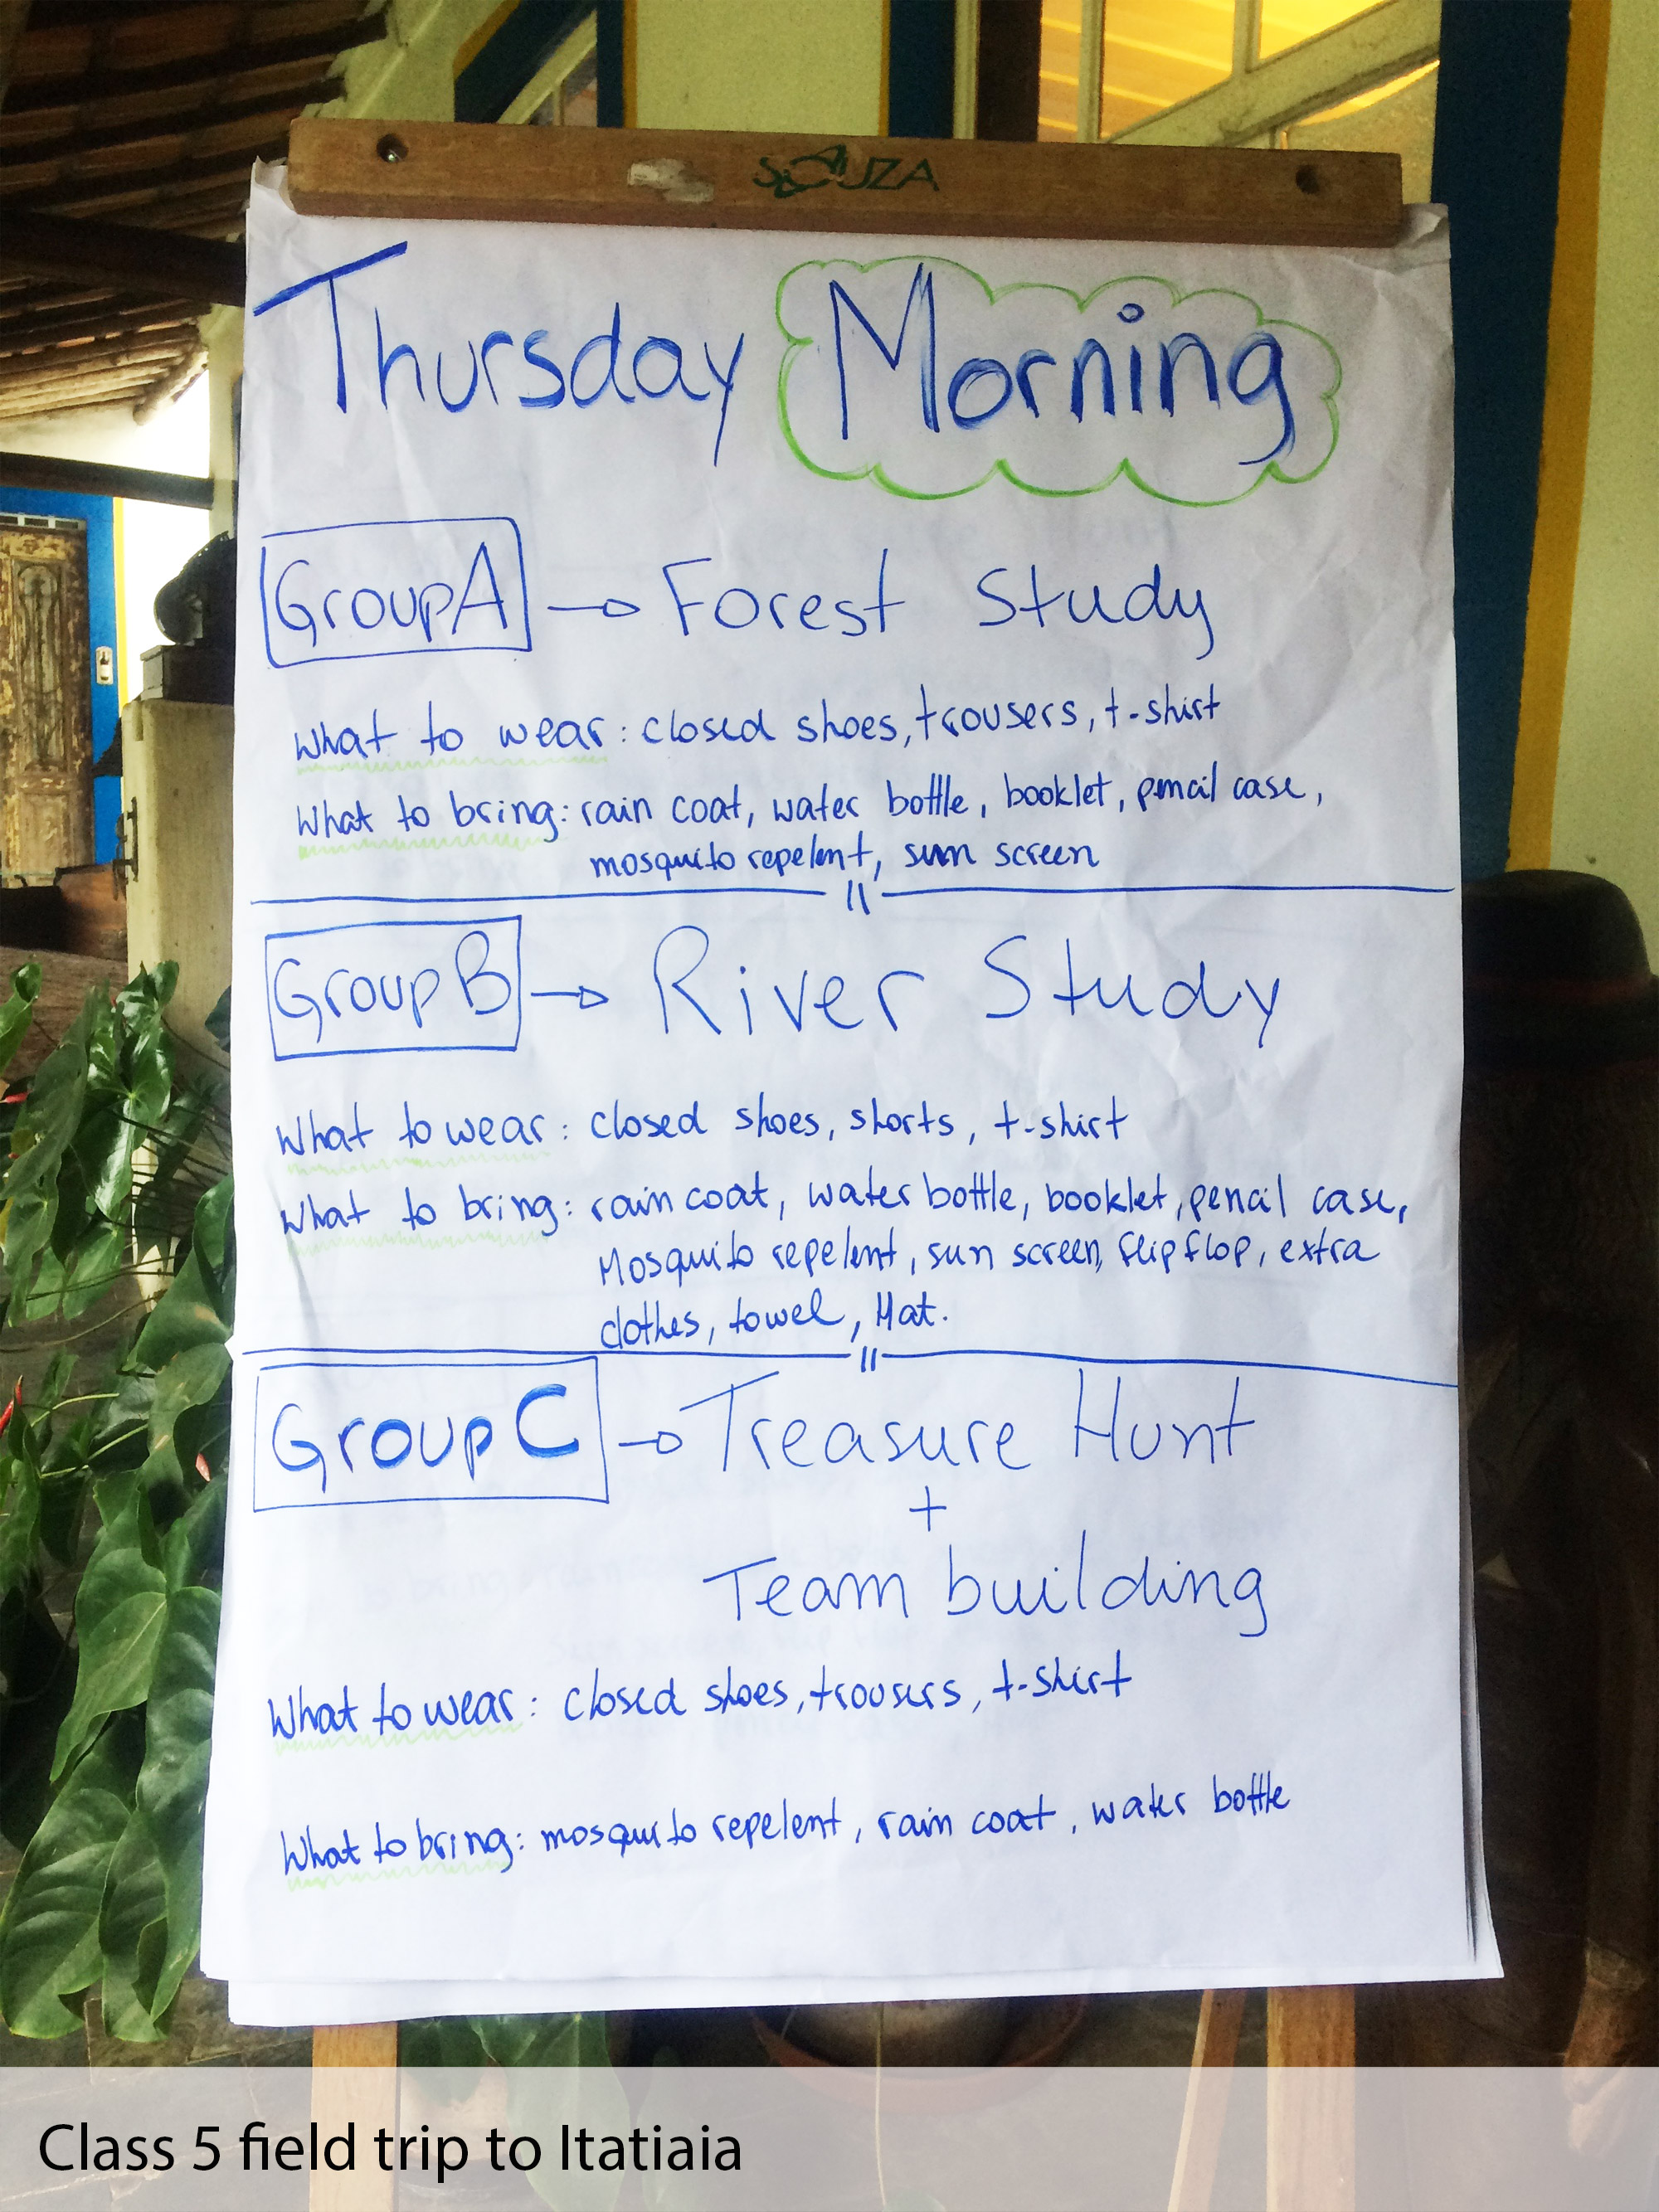 SOUZA
Thursday Morning
Group A → Forest Study
What to wear: closed shoes, trousers, t-shirt
What to bring: rain coat, water bottle, booklet, pencil case,
mosquito repelent, sun screen
Group B → River Study
What to wear: closed shoes, shorts, t-shirt
What to bring: rain coat, water bottle, booklet, pencil case,
Mosquito repelent, sun screen, flip flop, extra
clothes, towel, Hat.
Group C → Treasure Hunt
+
Team building
What to wear: closed shoes, trousers, t-shirt
What to bring: mosquito repelent, rain coat, water bottle
Class 5 field trip to Itatiaia